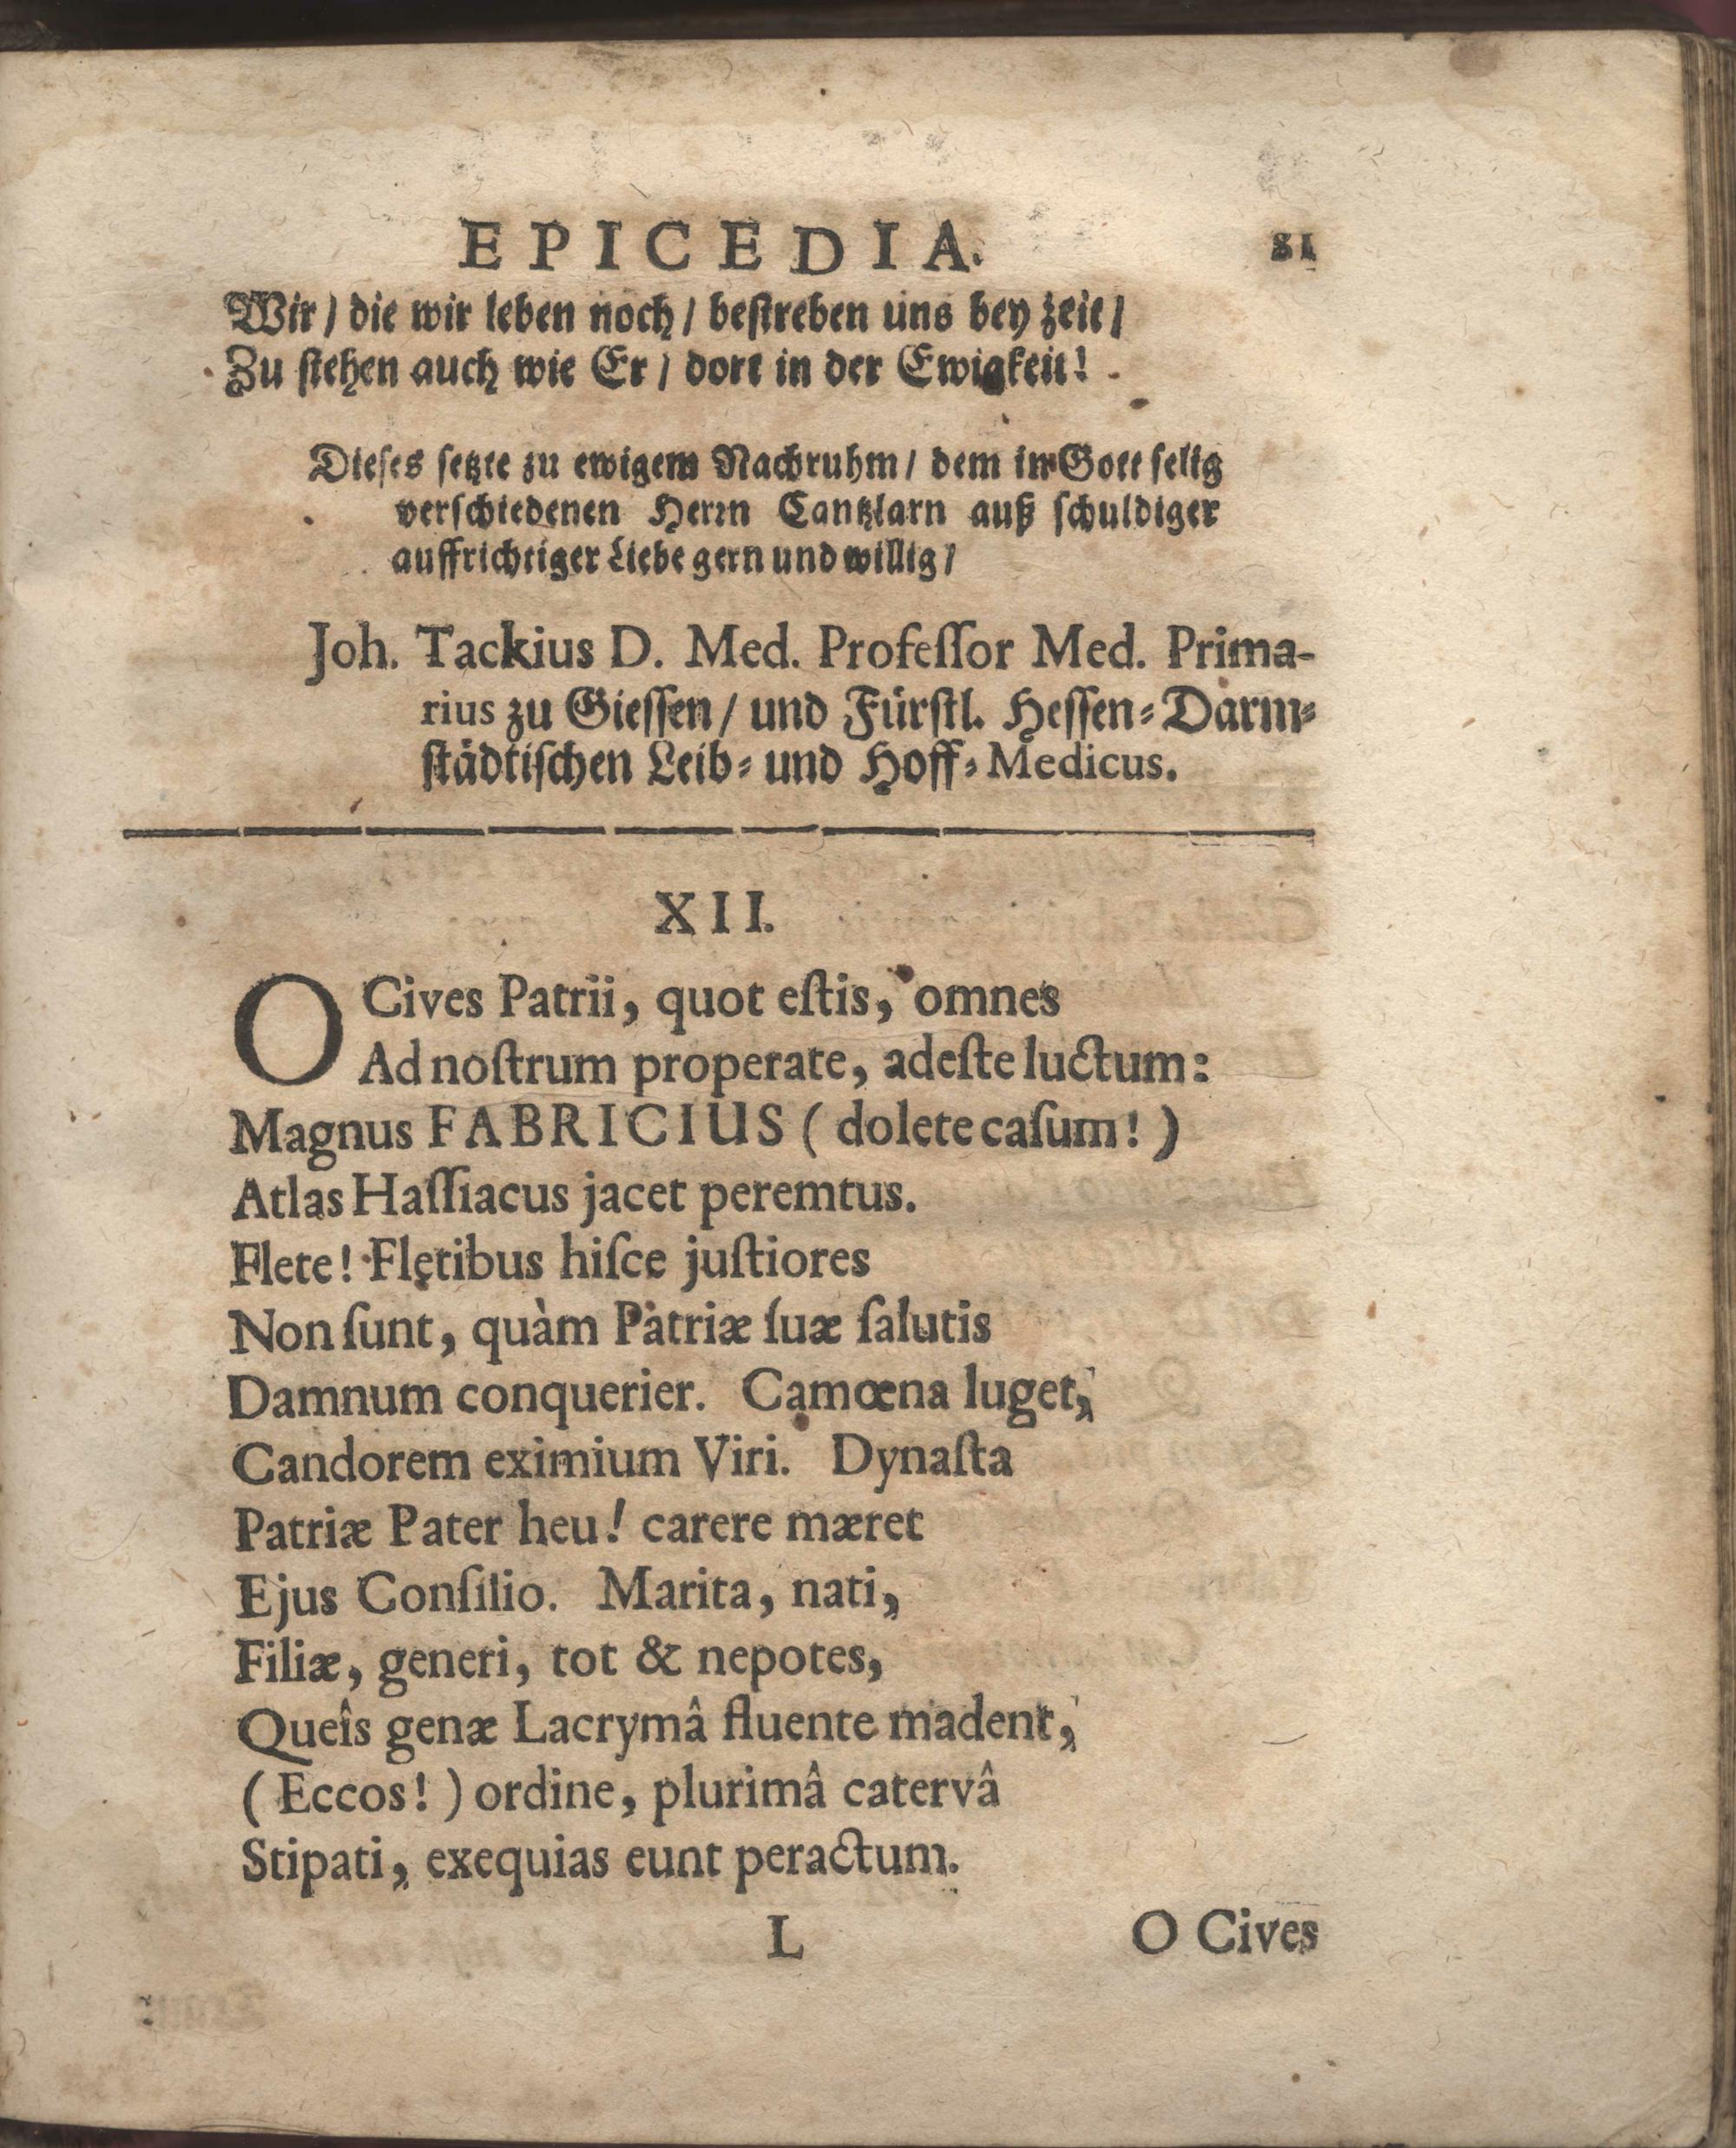 EPICEDIA. 81
Wir / die wir leben noch / beſtreben uns bey zeit /
Zu ſtehen auch wie Er / dort in der Ewigkeit!
Dieſes ſetzte zu ewigem Nachruhm / dem in Gott ſelig
verſchiedenen Herrn Cantzlarn auß ſchuldiger
auffrichtiger Liebe gern und willig /
Joh. Tackius D. Med. Profeſſor Med. Prima-
rius zu Gieſſen / und Fürſtl. Heſſen-Darm-
ſtädtiſchen Leib- und Hoff-Medicus.
XII.
O Cives Patrii, quot eſtis, omnes
Ad noſtrum properate, adeſte luctum:
Magnus FABRICIUS (dolete caſum!)
Atlas Haſſiacus jacet peremtus.
Flete! Fletibus hiſce juſtiores
Non ſunt, quàm Patriæ ſuæ ſalutis
Damnum conquerier. Camœna luget,
Candorem eximium Viri. Dynaſta
Patriæ Pater heu! carere mæret
Ejus Conſilio. Marita, nati,
Filiæ, generi, tot & nepotes,
Queîs genæ Lacrymâ fluente madent,
(Eccos!) ordine, plurimâ catervâ
Stipati, exequias eunt peractum.
L O Cives